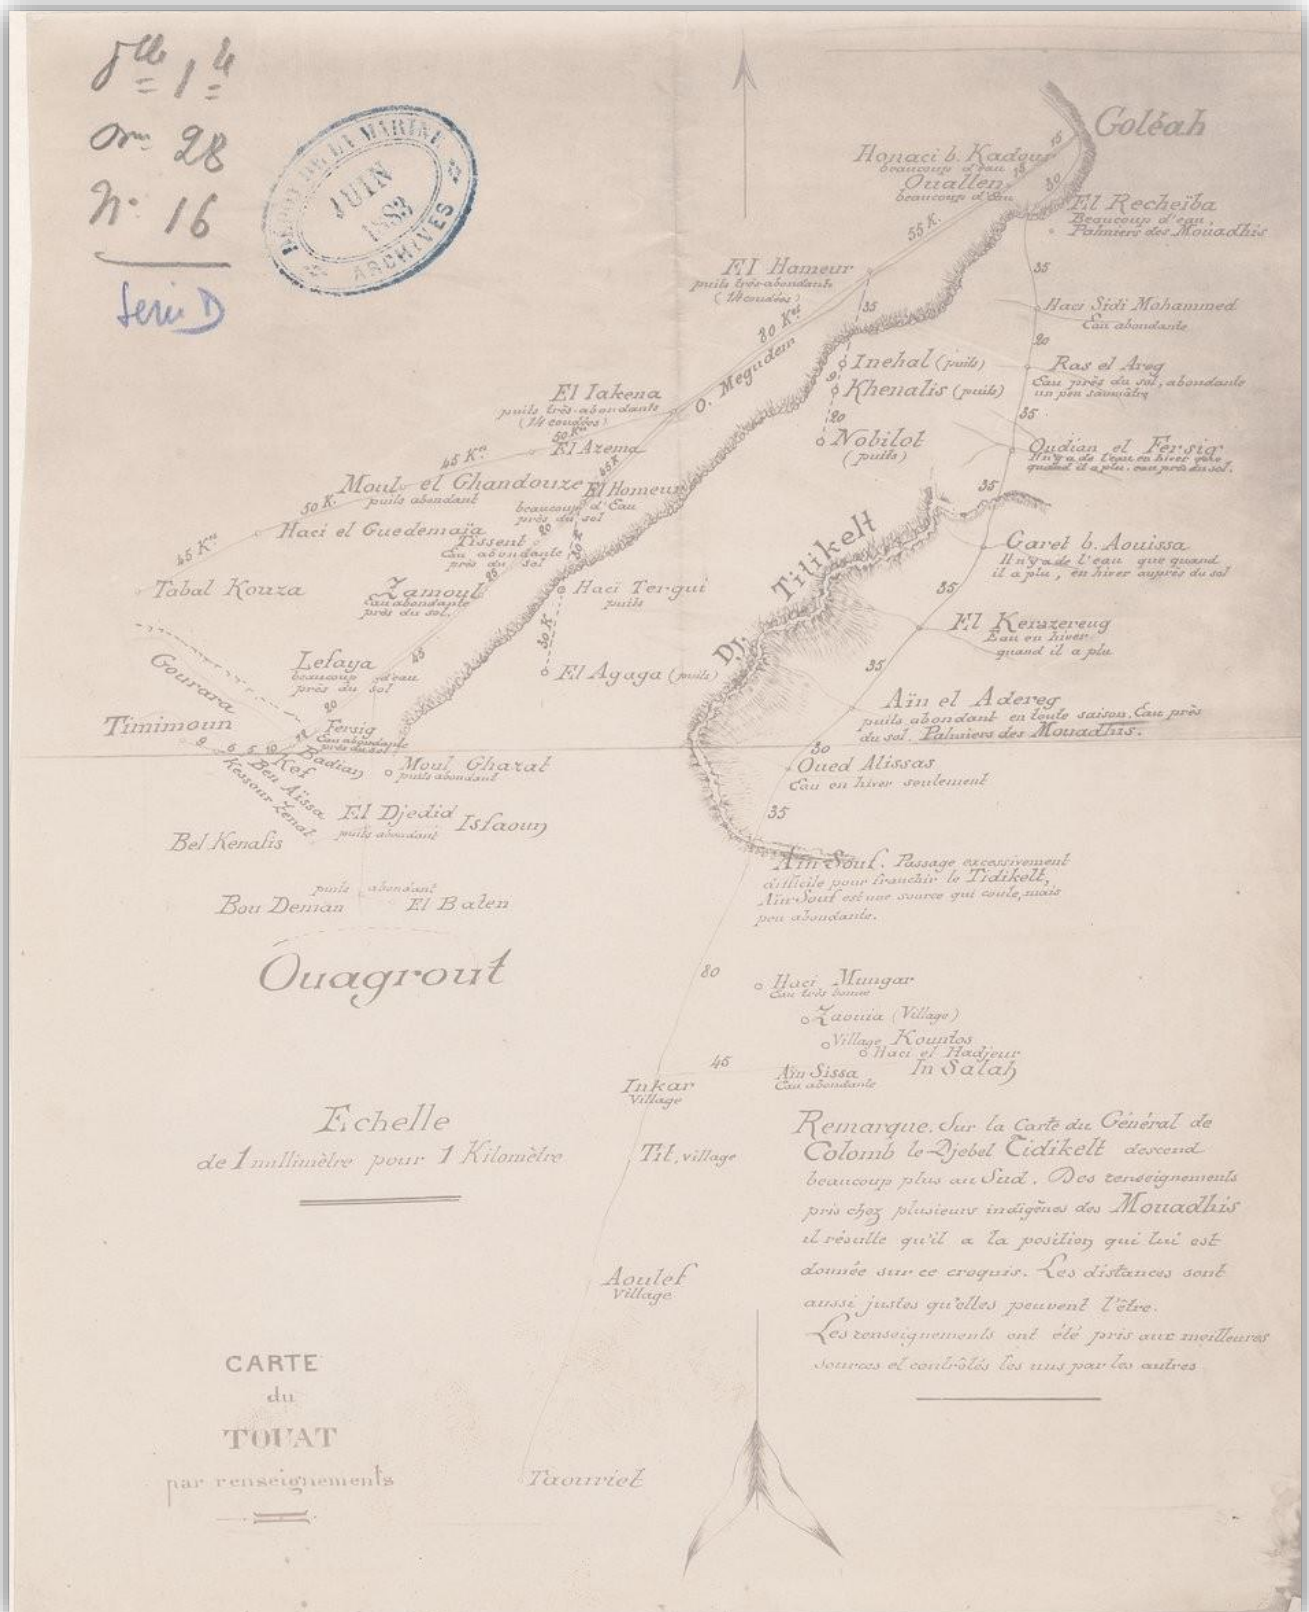 1
28
N° 16
Serie D
DÉPOT DE LA MARINE
JUIN
1883
ARCHIVES
Goléah
15
Honaci b. Kadour
beaucoup d'eau
15
Ouallen
beaucoup d'eau
30
El Recheïba
Beaucoup d'eau
Palmiers des Mouadhis
55 K.
El Hameur
puits très-abondants
(14 coudées)
35
35
Haci Sidi Mohammed
Eau abondante
80 Kes
O. Megudem
20
Inehal (puits)
9
Khenalis (puits)
20
Nobilot
(puits)
Ras el Areg
Eau près du sol, abondante
un peu saumâtre
35
Oudian el Fersig
Il n'y a de l'eau en hiver que
quand il a plu. eau près du sol.
35
El Iakena
puits très-abondants
(14 coudées)
50 Km
El Azema
45 Km
45 K
Moul el Ghandouze
puits abondant
El Homeur
beaucoup d'Eau
près du sol
50 K.
Haci el Guedemaïa
20
30 K
Tissent
Eau abondante
près du sol
45 Km
Tabal Kouza
25
Zamoul
Eau abondante
près du sol.
Haci Tergui
puits
30 K
El Agaga (puits)
Dj. Titikelt
Garet b. Aouissa
Il n'y a de l'eau que quand
il a plu, en hiver auprès du sol
35
El Kerazereug
Eau en hiver
quand il a plu
35
Aïn el Adereg
puits abondant en toute saison. Eau près
du sol. Palmiers des Mouadhis.
30
Oued Alissas
Eau en hiver seulement
35
45
Lefaya
beaucoup d'eau
près du sol
20
Gourara
Timimoun
9
6
5
10
12
Fersig
Eau abondante
près du sol
Badian
Kef
Ben Aïssa
Kessour Zenat
Moul Gharat
puits abondant
El Djedid
puits abondant
Isfaoun
Bel Kenafis
puits abondant
Bou Deman
El Baten
Ouagrout
Aïn Souf. Passage excessivement
difficile pour franchir le Tidikelt,
Aïn Souf est une source qui coule, mais
peu abondante.
80
Haci Mungar
Eau très bonne
Zaouia (Village)
Village Kountos
Haci el Hadjeur
45
Aïn Sissa
Eau abondante
In Salah
Inkar
Village
Echelle
de 1 millimètre pour 1 Kilomètre
Tit, village
Aoulef
Village
Taouriet
Remarque. Sur la Carte du Général de
Colomb le Djebel Tidikelt descend
beaucoup plus au Sud. Des renseignements
pris chez plusieurs indigènes des Mouadhis
il résulte qu'il a la position qui lui est
donnée sur ce croquis. Les distances sont
aussi justes qu'elles peuvent l'être.
Les renseignements ont été pris aux meilleures
sources et contrôlés les uns par les autres
CARTE
du
TOUAT
par renseignements